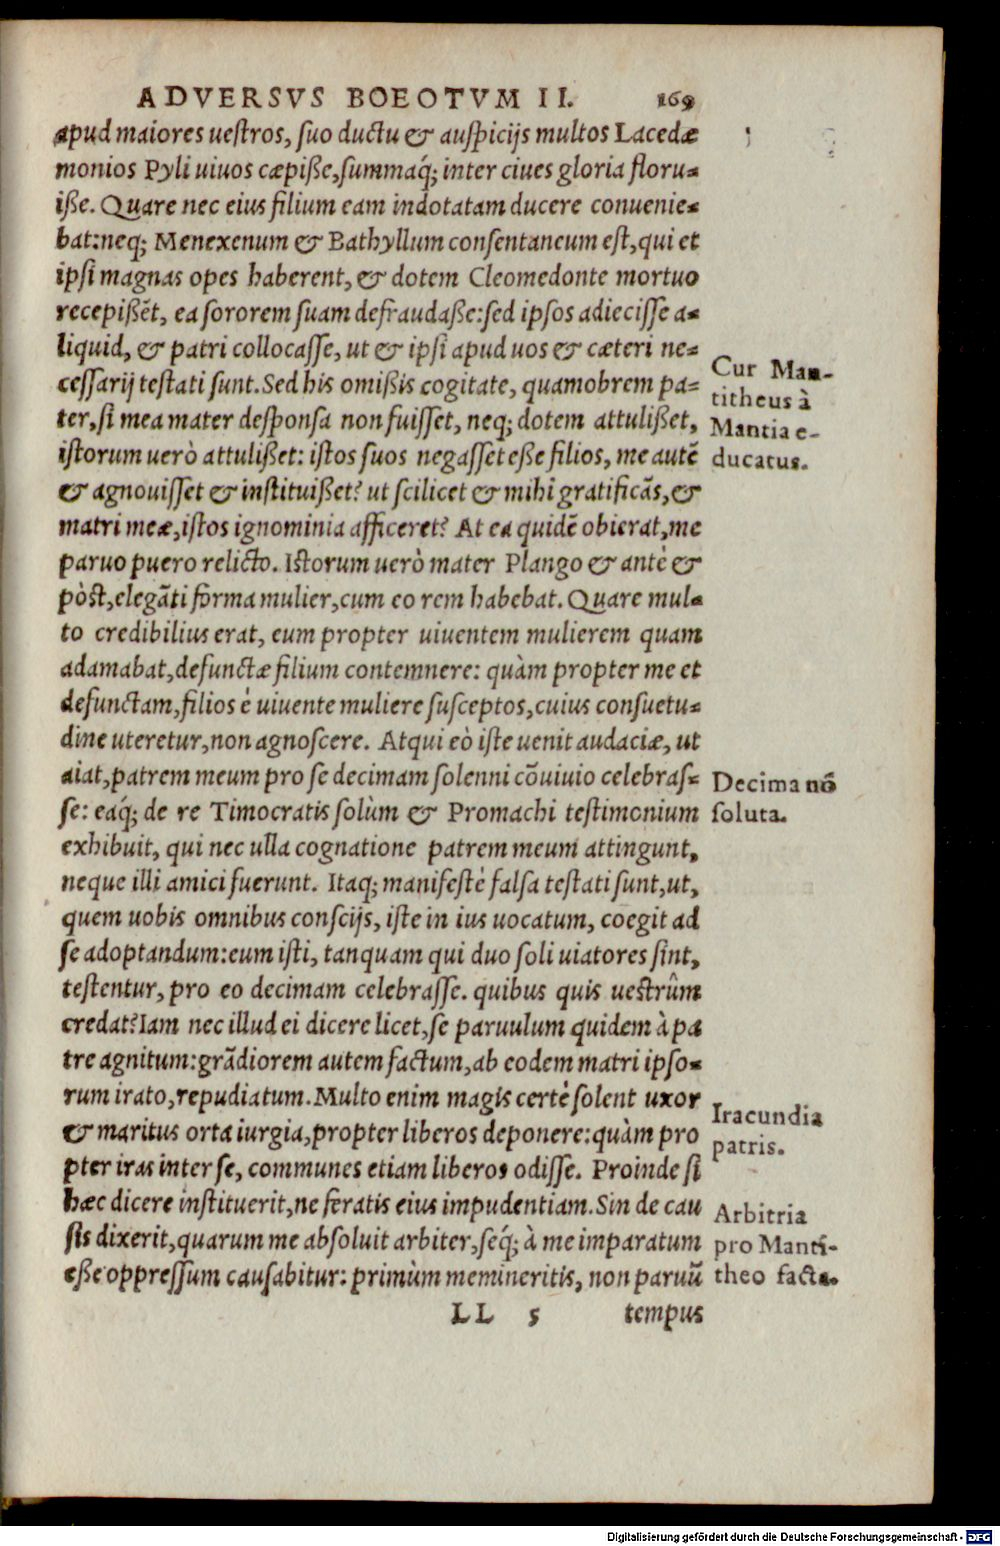 ADVERSVS BOEOTVM II. 169
apud maiores uestros, suo ductu & auspicijs multos Lacedæ
monios Pyli uiuos cæpiße, summaq́; inter ciues gloria floru-
iße. Quare nec eius filium eam indotatam ducere conuenie-
bat: neq; Menexenum & Bathyllum consentaneum est, qui et
ipsi magnas opes haberent, & dotem Cleomedonte mortuo
recepißẽt, ea sororem suam defraudaße: sed ipsos adiecisse a-
liquid, & patri collocasse, ut & ipsi apud uos & cæteri ne-
cessarij testati sunt. Sed his omißis cogitate, quamobrem pa-
ter, si mea mater desponsa non fuisset, neq; dotem attulißet,
istorum uerò attulißet: istos suos negasset eße filios, me autẽ
& agnouisset & instituißet? ut scilicet & mihi gratificãs, &
matri meæ, istos ignominia afficeret? At ea quidẽ obierat, me
paruo puero relicto. Istorum uerò mater Plango & antè &
pòst, elegãti forma mulier, cum eo rem habebat. Quare mul-
to credibilius erat, eum propter uiuentem mulierem quam
adamabat, defunctæ filium contemnere: quàm propter me et
defunctam, filios è uiuente muliere susceptos, cuius consuetu-
dine uteretur, non agnoscere. Atqui eò iste uenit audaciæ, ut
aiat, patrem meum pro se decimam solenni cõuiuio celebras-
se: eaq́; de re Timocratis solùm & Promachi testimonium
exhibuit, qui nec ulla cognatione patrem meum attingunt,
neque illi amici fuerunt. Itaq; manifestè falsa testati sunt, ut,
quem uobis omnibus conscijs, iste in ius uocatum, coegit ad
se adoptandum: eum isti, tanquam qui duo soli uiatores sint,
testentur, pro eo decimam celebrasse. quibus quis uestrûm
credat? Iam nec illud ei dicere licet, se paruulum quidem à pa
tre agnitum: grãdiorem autem factum, ab eodem matri ipso-
rum irato, repudiatum. Multo enim magis certè solent uxor
& maritus orta iurgia, propter liberos deponere: quàm pro
pter iras inter se, communes etiam liberos odisse. Proinde si
hæc dicere instituerit, ne feratis eius impudentiam. Sin de cau
sis dixerit, quarum me absoluit arbiter, seq́; à me imparatum
eße oppressum causabitur: primùm memineritis, non paruũ
LL 5 tempus
Cur Man-
titheus à
Mantia e-
ducatus.
Decima nõ
soluta.
Iracundia
patris.
Arbitria
pro Manti-
theo facta.
Digitalisierung gefördert durch die Deutsche Forschungsgemeinschaft - DFG